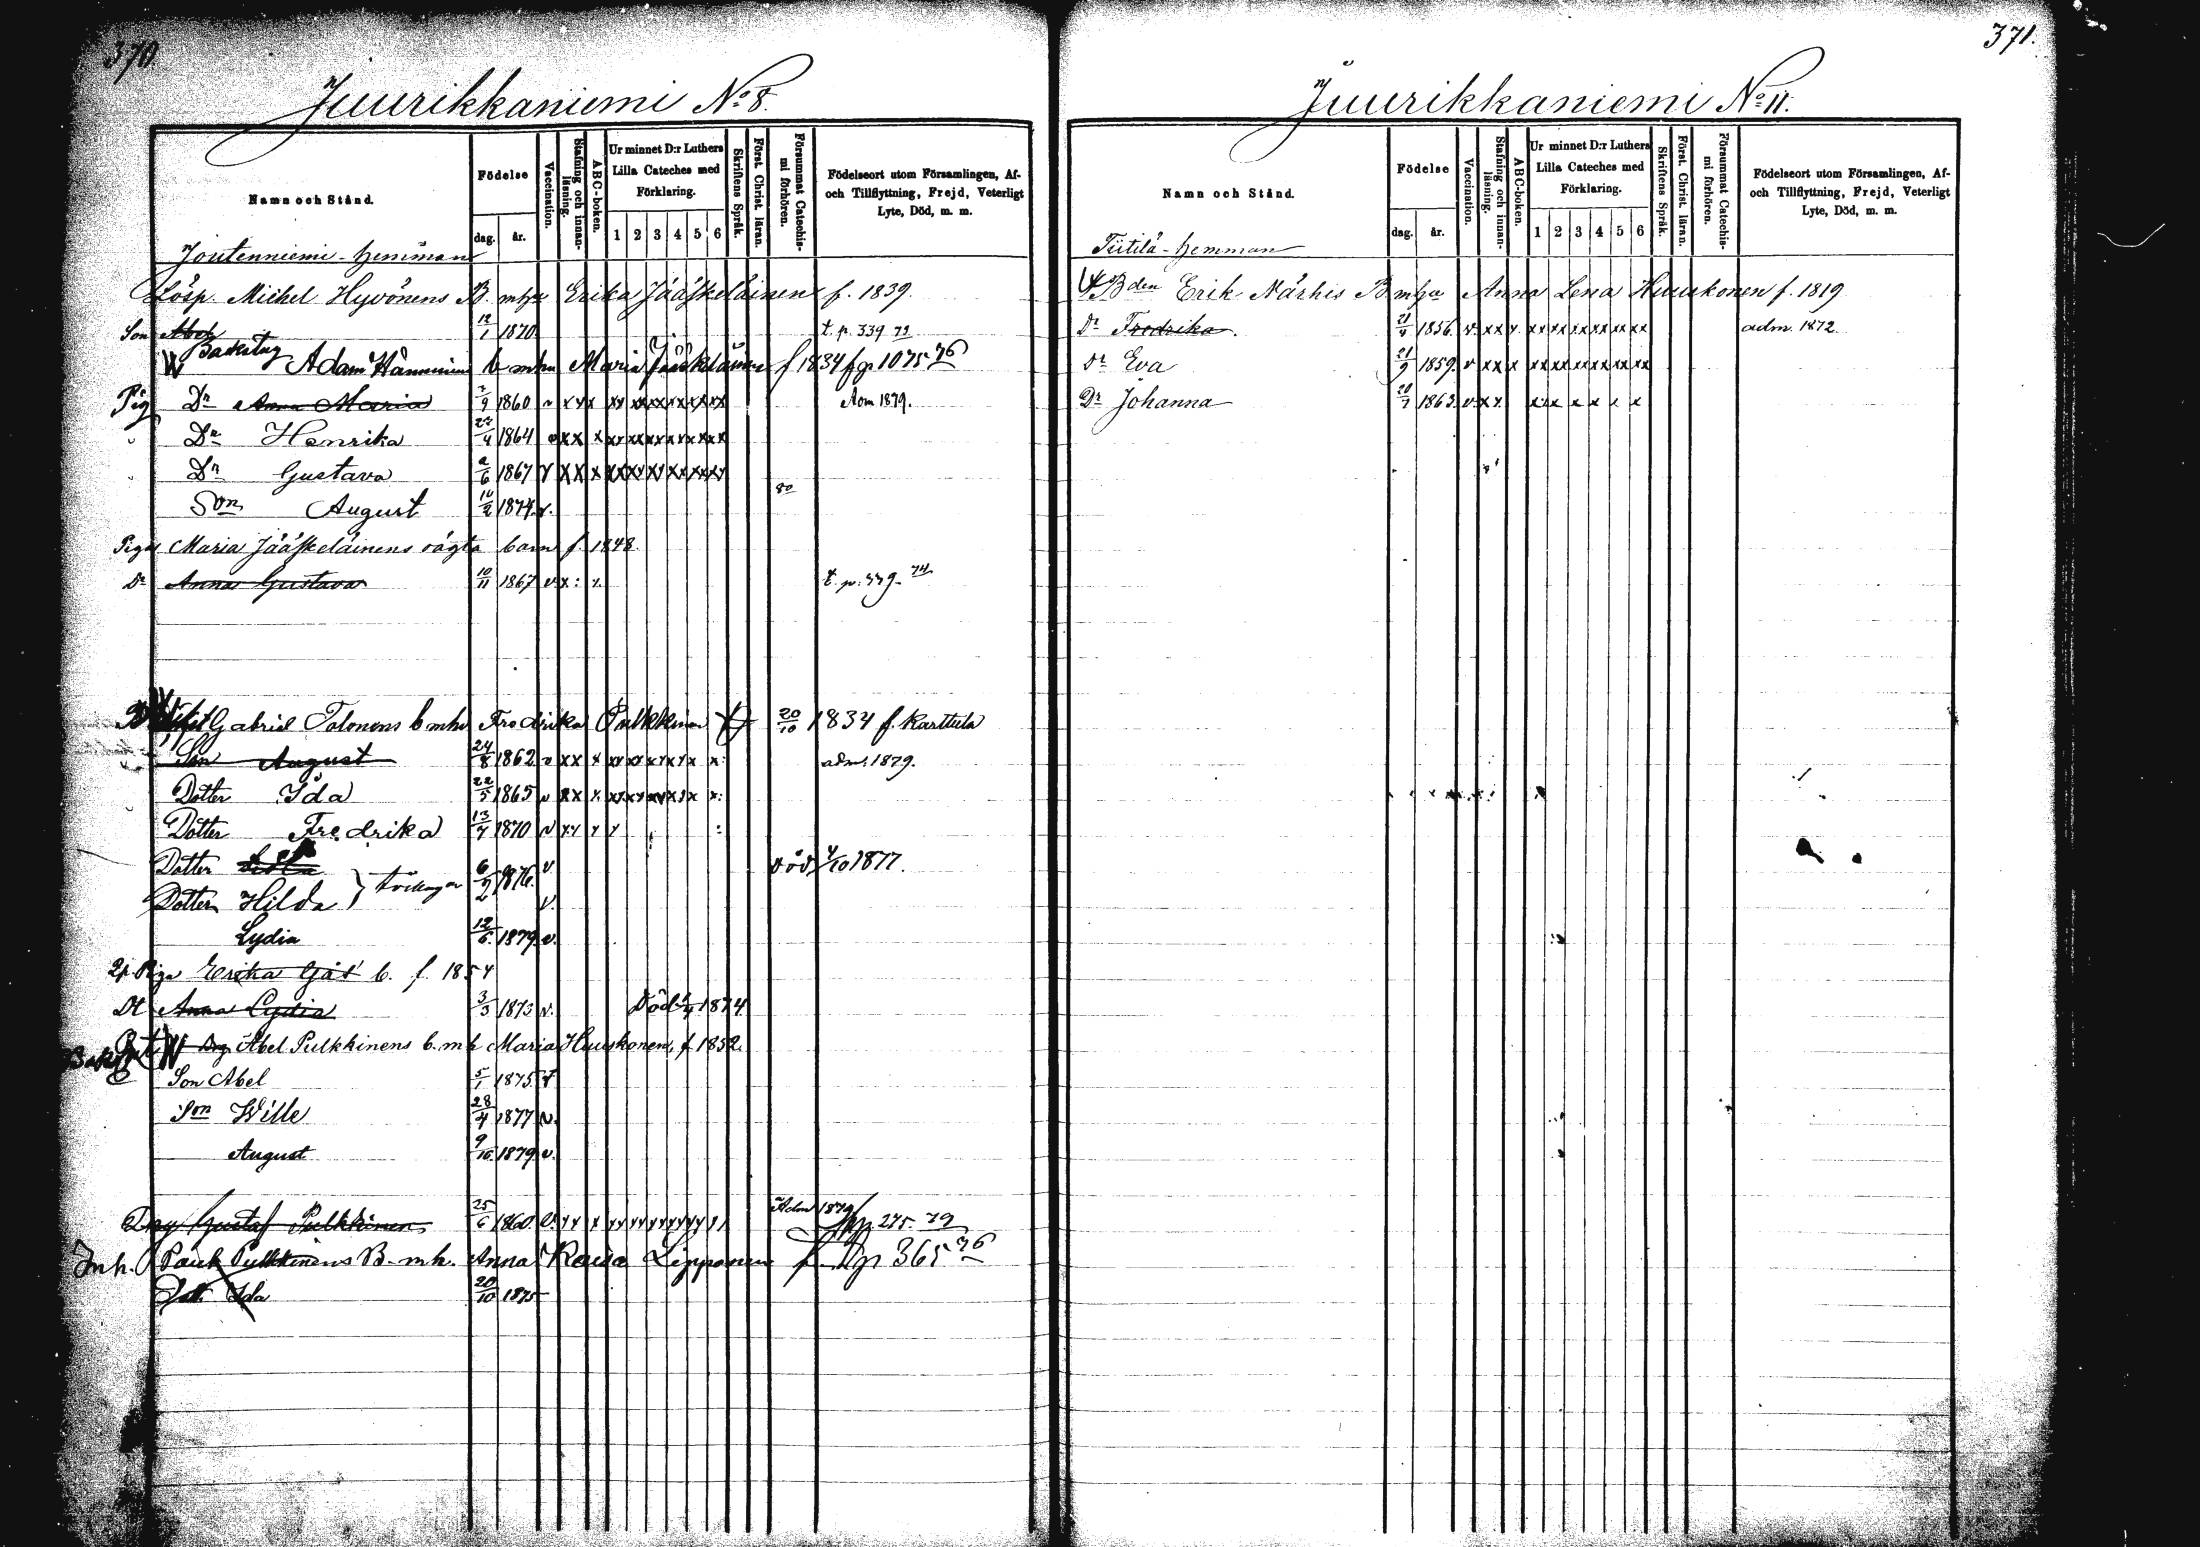 370.
Juurikkaniemi No 8.
Namn och Stånd.
Födelse
dag.
år.
Vaccination.
Stafning och innan-läsning.
ABC-boken.
Ur minnet D:r Luthers Lilla Cateches med Förklaring.
1 2 3 4 5 6
Skriftens Språk.
Först. Christ. läran.
Försummat Catechis-mi förhören.
Födelseort utom Församlingen, Af- och Tillflyttning, Frejd, Veterligt Lyte, Död, m. m.
Joutenniemi-hemman
Lösp. Michel Hyvönens B. mhu Erika Jääskeläinen f. 1839.
Son Abel 12/1 1870 t. p. 339 72
Backstug Adam Hänninens b mhu Maria Jääskeläinen f 1834 f p 1075 76
Pig Dr Anna Maria 7/9 1860 v x x x xx xx xx xx xx xx Adm 1879.
Dr Henrika 22/4 1864 v x x x xx xx xx xx xx xx
Dr Gustava 2/6 1867 v x x x xx xx xx xx xx xx
80
Son August 10/2 1874 v.
Pigan Maria Jääskeläinens oägta barn f. 1848.
Dr Anna Gustava 10/11 1867 v x : x. t. p. 339 74
Gabriel Tolonens b mhu Fredrika Pulkkinen 20/10 1834 f. Karttula
Son August 24/8 1862 v xx x xx xx xx xx x: adm. 1879.
Dotter Ida 22/5 1865 v xx x xx xx xx xx x:
Dotter Fredrika 13/7 1870 v xx x x
Dotter v. död 4/10 1877.
Dotter Hilda } tvillingar 6/2 1876. v.
Lydia 12/6 1879 v.
Piga Erika Gås b. f. 1854
Dt Anna Lydia 3/3 1873 v. Död /4 1874
Bakst Drg Abel Pulkkinens b. mh Maria Huuskonen, f. 1852.
Son Abel 5/1 1875 v
Son Wille 28/4 1877 v.
August 9/10 1879 v.
Drg Gustaf Pulkkinen 25/6 1860 v. xx x xx xx xx xx Adm 1879 p. 275. 79
Inh. Paul Pulkkinens B. mh. Anna Kaisa Lipponen f. p 365 76
Dott. Ida 20/10 1875
371.
Juurikkaniemi No 11.
Namn och Stånd.
Födelse
dag.
år.
Vaccination.
Stafning och innan-läsning.
ABC-boken.
Ur minnet D:r Luthers Lilla Cateches med Förklaring.
1 2 3 4 5 6
Skriftens Språk.
Först. Christ. läran.
Försummat Catechis-mi förhören.
Födelseort utom Församlingen, Af- och Tillflyttning, Frejd, Veterligt Lyte, Död, m. m.
Tiitilä-hemman
Bden Erik Närhis B mhu Anna Lena Huuskonen f. 1819
Dr Fredrika. 21/4 1856. v. xx x. xx xx xx xx xx xx adm. 1872.
Dr Eva 21/9 1859. v xx x xx xx xx xx xx xx
Dr Johanna 20/7 1863. v. xx. x x x x x x